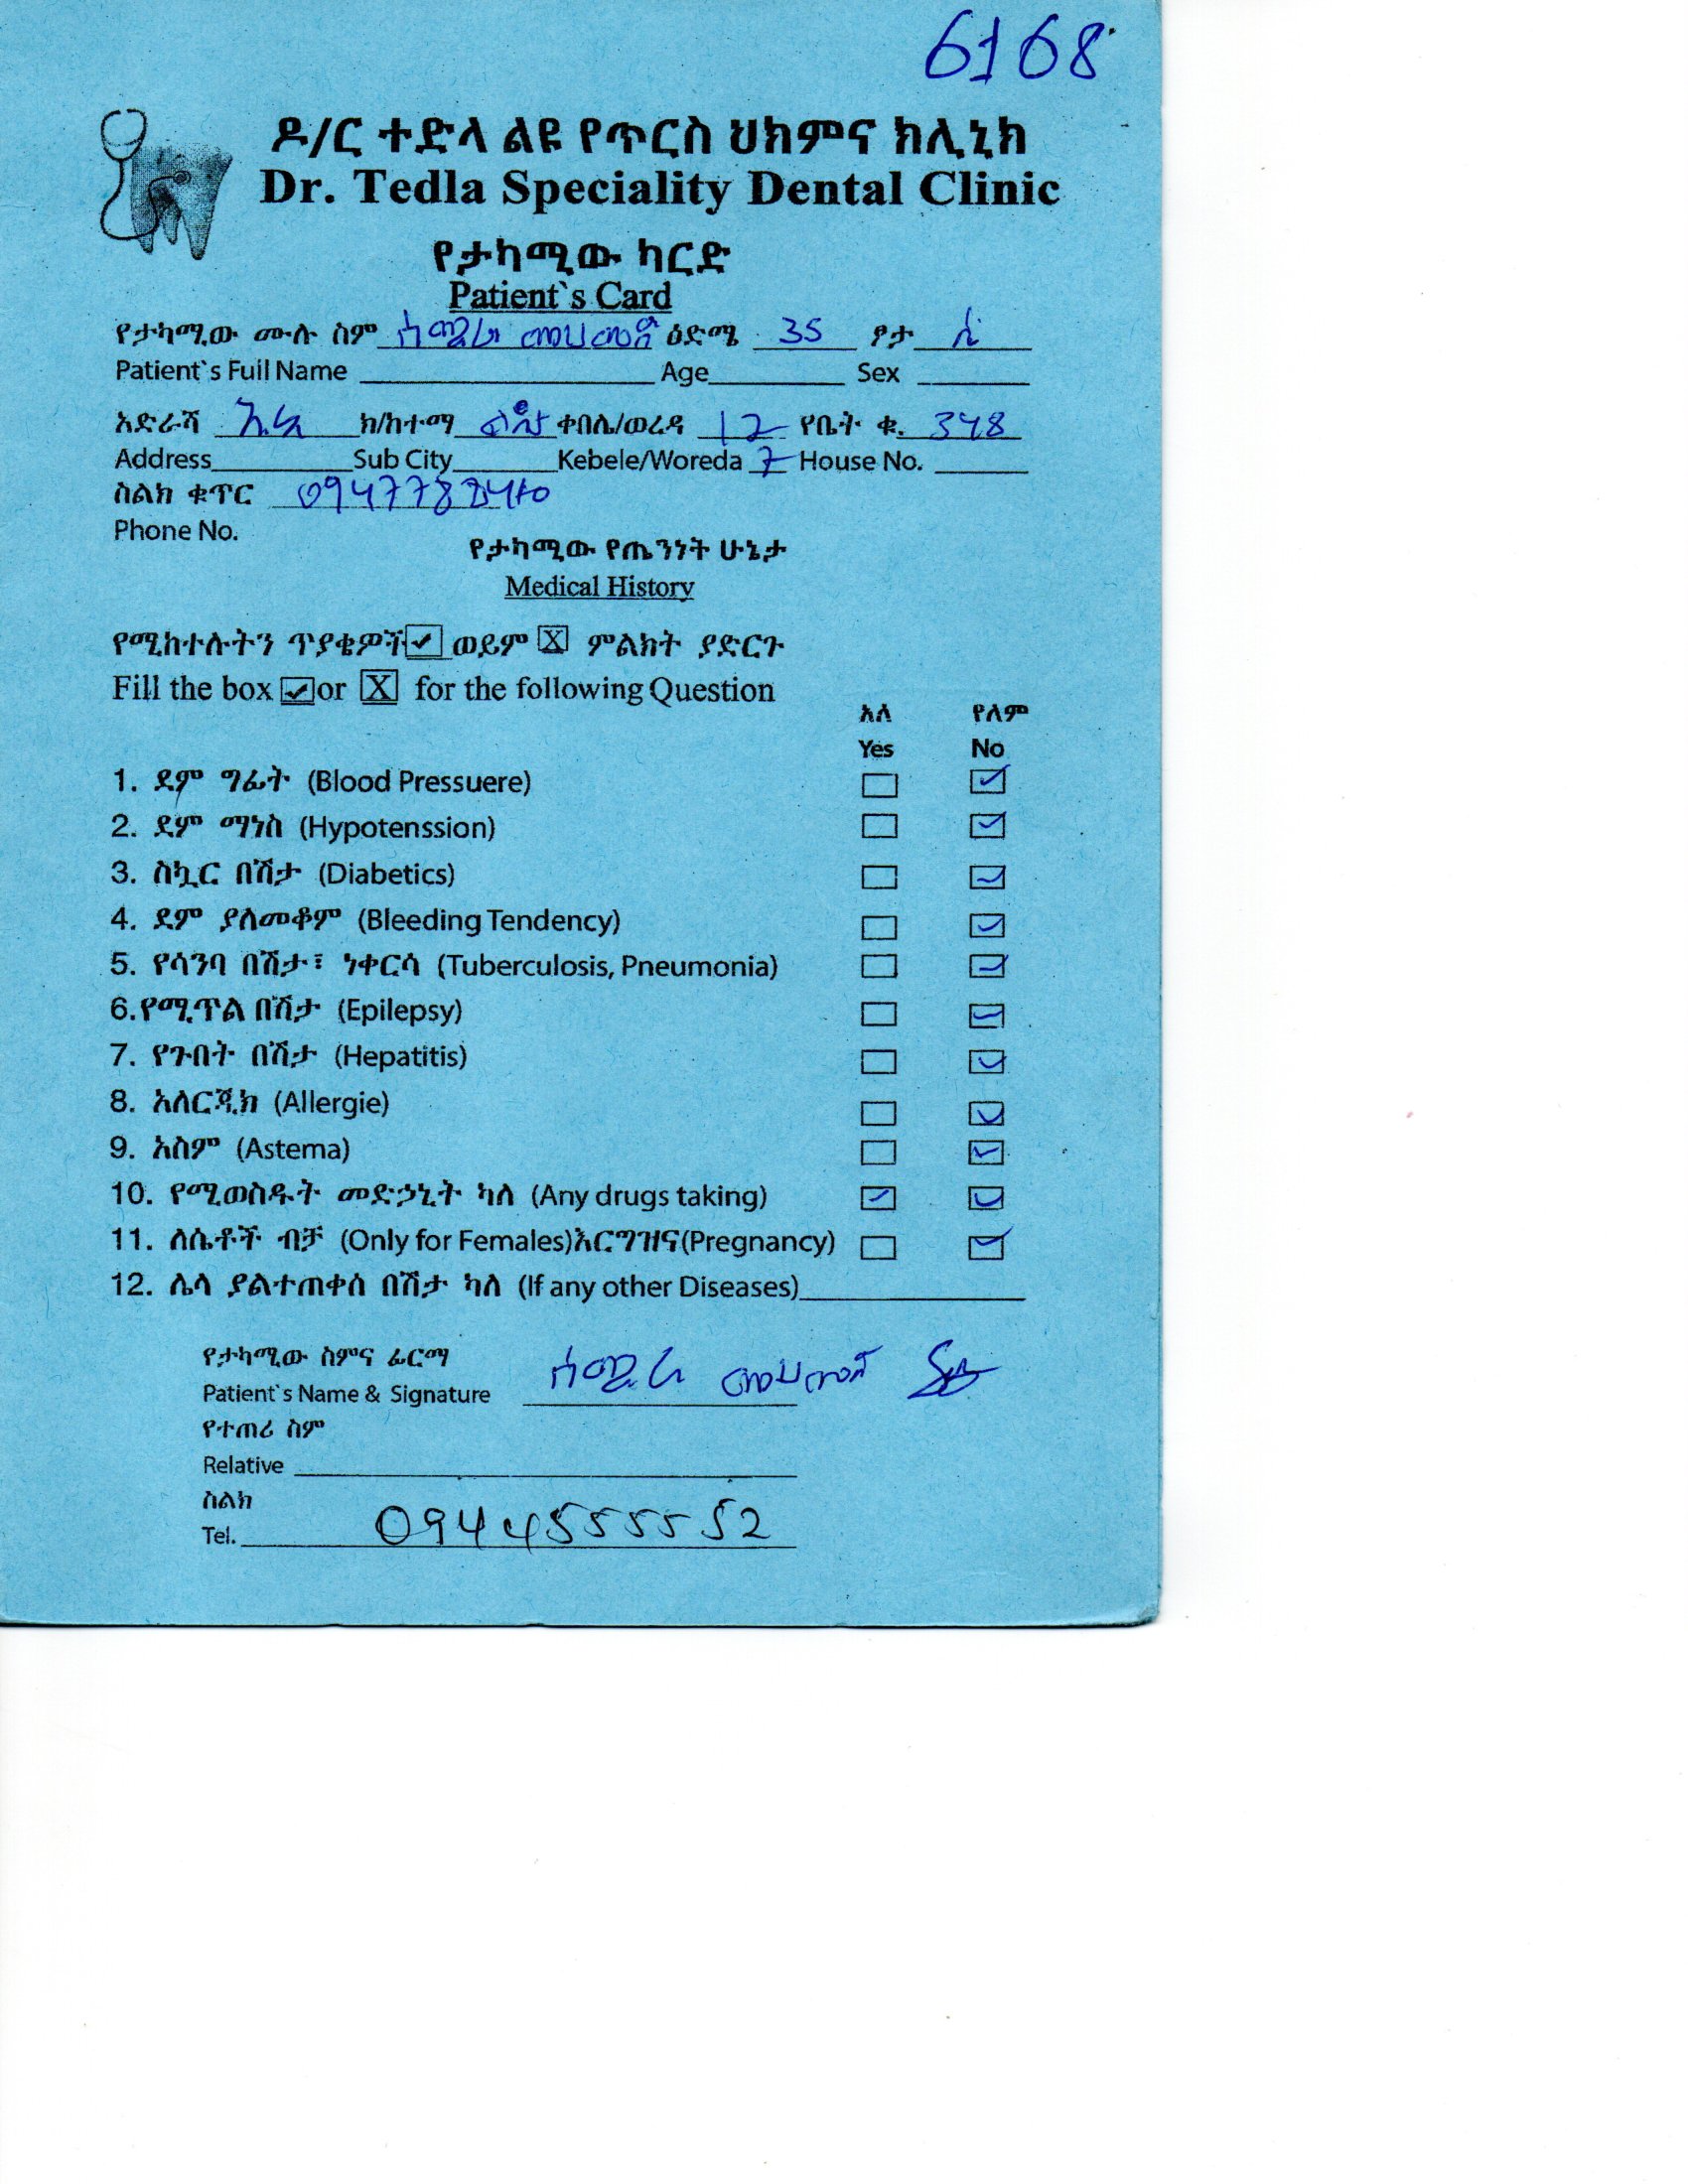 6168
ዶ/ር ተድላ ልዩ የጥርስ ህክምና ክሊኒክ
Dr. Tedla Speciality Dental Clinic
የታካሚው ካርድ
Patient`s Card
የታካሚው ሙሉ ስም ሰሚራ መሀመድ ዕድሜ 35 ፆታ ሴ
Patient`s Full Name Age Sex
አድራሻ አ.አ ክ/ከተማ ልደታ ቀበሌ/ወረዳ 12 የቤት ቁ. 348
Address Sub City Kebele/Woreda 7 House No.
ስልክ ቁጥር
Phone No.
የታካሚው የጤንነት ሁኔታ
Medical History
የሚከተሉትን ጥያቄዎች ✓ ወይም X ምልክት ያድርጉ
Fill the box ✓ or X for the following Question
አለ የለም
Yes No
1. ደም ግፊት (Blood Pressuere) ✓
2. ደም ማነስ (Hypotenssion) ✓
3. ስኳር በሽታ (Diabetics) ✓
4. ደም ያለመቆም (Bleeding Tendency) ✓
5. የሳንባ በሽታ፣ ነቀርሳ (Tuberculosis, Pneumonia) ✓
6.የሚጥል በሽታ (Epilepsy) ✓
7. የጉበት በሽታ (Hepatitis) ✓
8. አለርጂክ (Allergie) ✓
9. አስም (Astema) ✓
10. የሚወስዱት መድኃኒት ካለ (Any drugs taking) ✓ ✓
11. ለሴቶች ብቻ (Only for Females)እርግዝና(Pregnancy) ✓
12. ሌላ ያልተጠቀሰ በሽታ ካለ (If any other Diseases)
የታካሚው ስምና ፊርማ ሰሚራ መሀመድ
Patient`s Name & Signature
የተጠሪ ስም
Relative
ስልክ
Tel. 0944555552